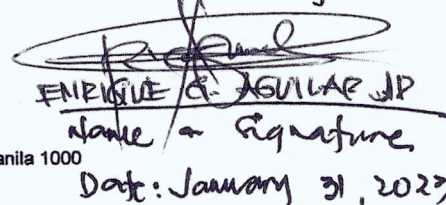 ENRIQUE G. AGUILAR JR
Name & Signature
anila 1000
Date: January 31, 2023